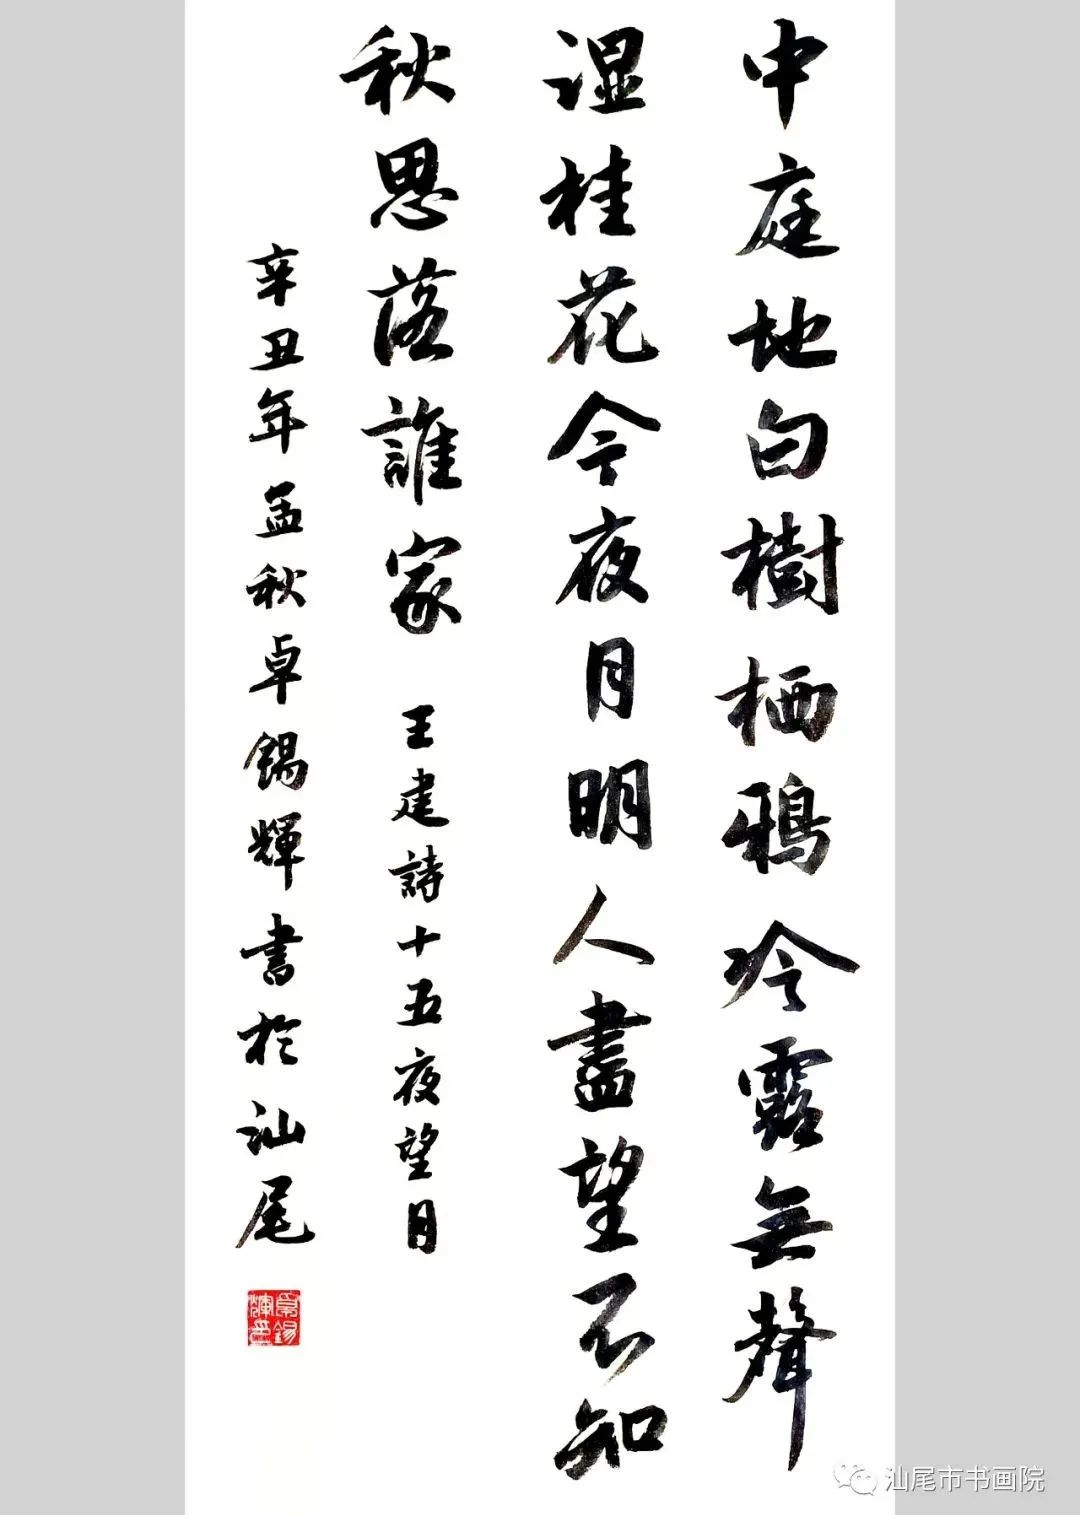 中庭地白樹栖鴉冷露無聲
湿桂花今夜月明人盡望不知
秋思落誰家
王建詩十五夜望月
辛丑年孟秋卓錫輝書於汕尾
卓錫輝印
汕尾市书画院